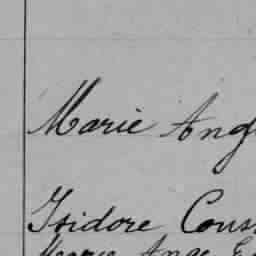 Marie Ang
Isidore Cous
Marie Ange E